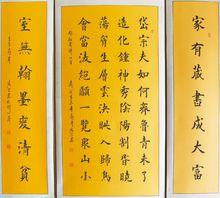 家有藏書成大富
岱宗夫如何齊魯青未了
造化鍾神秀陰陽割昏曉
蕩胸生層雲決眥入歸鳥
會當凌絕頂一覽眾山小
室無翰墨清貧